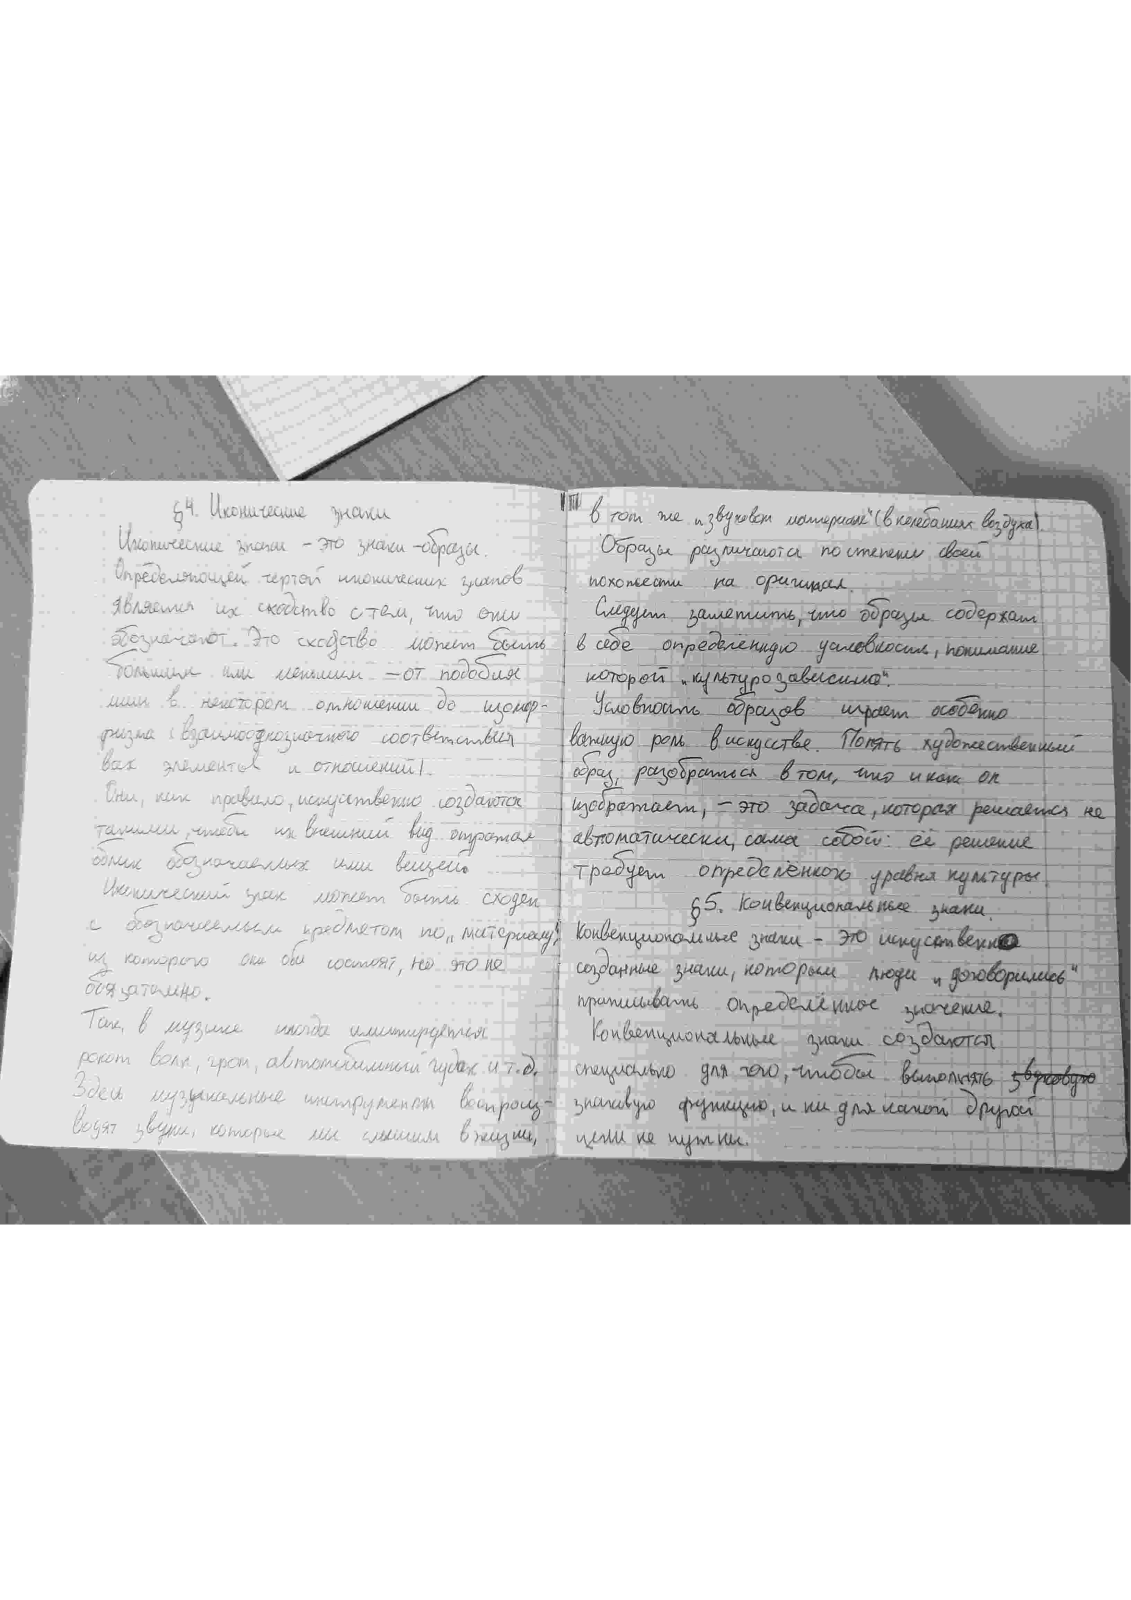 §4. Иконические знаки
Иконические знаки – это знаки-образы.
Определяющей чертой иконических знаков
является их сходство с тем, что они
обозначают. Это сходство может быть
большим или меньшим – от подобия
лишь в некотором отношении до изомор-
физма (взаимооднозначного соответствия
всех элементов и отношений).
Они, как правило, искуственно создаются
такими, чтобы их внешний вид отражал
облик обозначаемых ими вещей.
Иконический знак может быть сходен
с обозначаемым предметом по „материалу",
из которого они оба состоят, но это не
обязательно.
Так, в музыке иногда имитируется
рокот волн, гром, автомобильный гудок и т.д.
Здесь музыкальные инструменты воспроиз-
водят звуки, которые мы слышим в жизни,
в том же „звуковом материале" (в колебаниях воздуха).
Образы различаются по степени своей
похожести на оригинал.
Следует заметить, что образы содержат
в себе определённую условность, понимание
которой „культурозависимо".
Условность образов играет особенно
важную роль в искусстве. Понять художественный
образ, разобраться в том, что и как он
изображает, – это задача, которая решается не
автоматически, сама собой: её решение
требует определённого уровня культуры.
§5. Конвенциональные знаки.
Конвенциональные знаки – это искуственно
созданные знаки, которым люди „договорились"
приписывать определённое значение.
Конвенциональные знаки создаются
специально для того, чтобы выполнять звуковую
знаковую функцию, и ни для какой другой
цели не нужны.